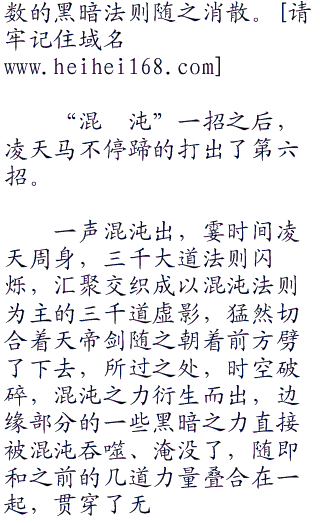 数的黑暗法则随之消散。[请
牢记住域名
www.heihei168.com]
“混　沌”一招之后，
凌天马不停蹄的打出了第六
招。
一声混沌出，霎时间凌
天周身，三千大道法则闪
烁，汇聚交织成以混沌法则
为主的三千道虚影，猛然切
合着天帝剑随之朝着前方劈
了下去，所过之处，时空破
碎，混沌之力衍生而出，边
缘部分的一些黑暗之力直接
被混沌吞噬、淹没了，随即
和之前的几道力量叠合在一
起，贯穿了无